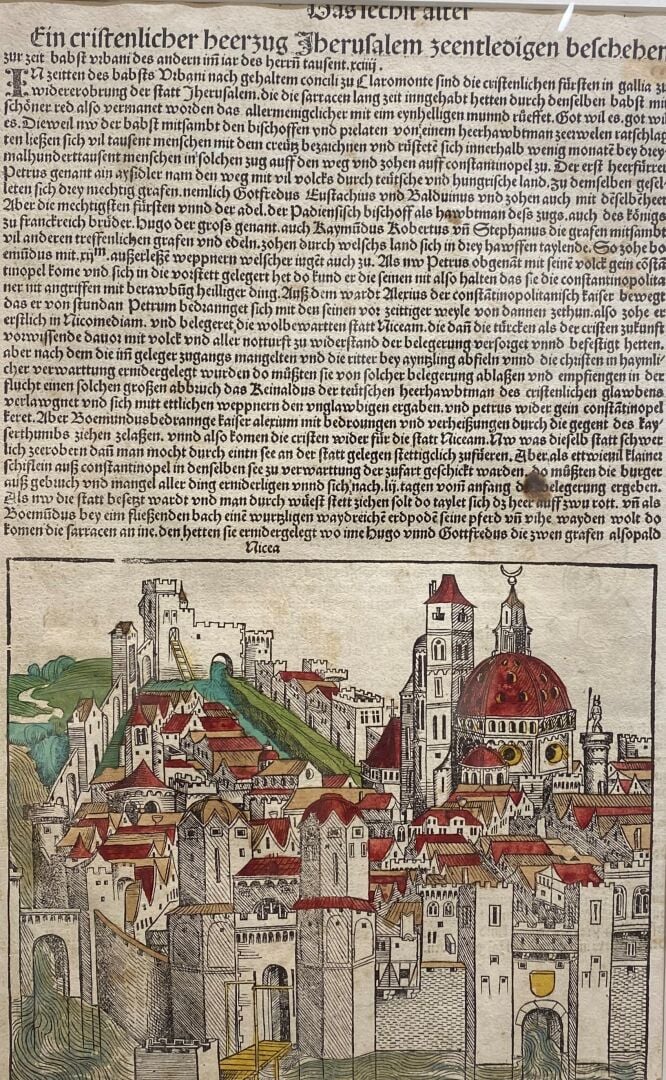 Das sechst alter
Ein cristenlicher heerzug Jherusalem zeentledigen beschehen
zur zeit babst vrbani des andern inn iar des herrn tausent.xciiij.
IN zeitten des babsts Vrbani nach gehaltem concili zu Claromonte sind die cristenlichen fürsten in gallia zu
widererobrung der statt Jherusalem.die die sarracen lang zeit inngehabt hetten durch denselben babst mit
schöner red also vermanet worden das allermenigclicher mit eim eynhelligen munnd rüeffet.Got wil es.got wil
es.Dieweil nw der babst mitsambt den bischoffen vnd prelaten von einem heerhawbtman zeerwelen ratschlag
ten ließen sich vil tausent menschen mit dem creütz bezaichnen vnd rüstetē sich innerhalb wenig monatē bey drey
malhunderttausent menschen in solchen zug auff den weg vnd zohen auff constantinopel zu. Der erst heerfürrer
Petrus genant ain aysidler nam den weg mit vil volcks durch teütsche vnd hungrische land.zu demselben gesel
leten sich drey mechtig grafen.nemlich Gotfredus Eustachius vnd Balduinus vnd zohen auch mit dēselbē heer
Aber die mechtigsten fürsten vnnd der adel.der Padiensisch bischoff als hawbtman deß zugs.auch des königs
zu franckreich brüder.Hugo der groß genant.auch Kaymūdus Kobertus vn̄ Stephanus die grafen mitsambt
vil anderen treffenlichen grafen vnd edeln.zohen durch welschs land sich in drey hawffen taylende. So zohe bo
emūdus mit.xijm.außerleßē weppnern welscher iugēt auch zu. Als nw Petrus obgenāt mit seinē volck gein cōstā
tinopel kome vnd sich in die vorstett gelegert het do kund er die seinen nit also halten das sie die constantinopolita
ner nit angriffen mit berawbūg heilliger ding. Auß dem wardt Alexius der constātinopolitanisch kaiser bewegt
das er von stundan Petrum bedrannget sich mit den seinen vor zeittiger weyle von dannen zethun.also zohe er
erstlich in Nicomediam. vnd belegeret die wolbewartten statt Niceam.die dañ die türcken als der cristen zukunft
vorwissende dauor mit volck vnd aller notturft zu widerstand der belegerung versorget vnnd befestigt hetten.
aber nach dem die in geleger zugangs mangelten vnd die ritter bey ayntzling abfieln vnnd die christen in haymli-
cher verwarttung ernidergelegt wurden do müßten sie von solcher belegerung ablaßen vnd empfiengen in der
flucht einen solchen großen abbruch das Keinaldus der teütschen heerhawbtman des cristenlichen glawbens
verlawgnet vnd sich mitt ettlichen weppnern den vnglawbigen ergaben.vnd petrus wider gein constātinopel
keret.Aber Boemundus bedrannge kaiser alexium mit bedroungen vnd verheißungen durch die gegent des kay
serthumbs ziehen zelaßen. vnnd also komen die cristen wider für die statt Niceam. Nw was dieselb statt schwer
lich zeerobern dañ man mocht durch eintn see an der statt gelegen stettigclich zufüren. Aber als ettwieuil klainer
schiflein auß constantinopel in denselben see zu verwarttung der zufart geschickt warden. do müßten die burger
auß gebruch vnd mangel aller ding erniderligen vnnd sich nach.lij.tagen vom anfang d belegerung ergeben.
Als nw die statt besetzt wardt vnd man durch wüest stett ziehen solt do taylet sich dz heer auff zwu rott. vn̄ als
Boemūdus bey eim fließenden bach einē wurtzligen waydreichē erdpodē seine pferd vn̄ vihe wayden wolt do
komen die sarracen an ine.den hetten sie ernidergelegt wo ime Hugo vnnd Gottfredus die zwen grafen alsopald
Nicea